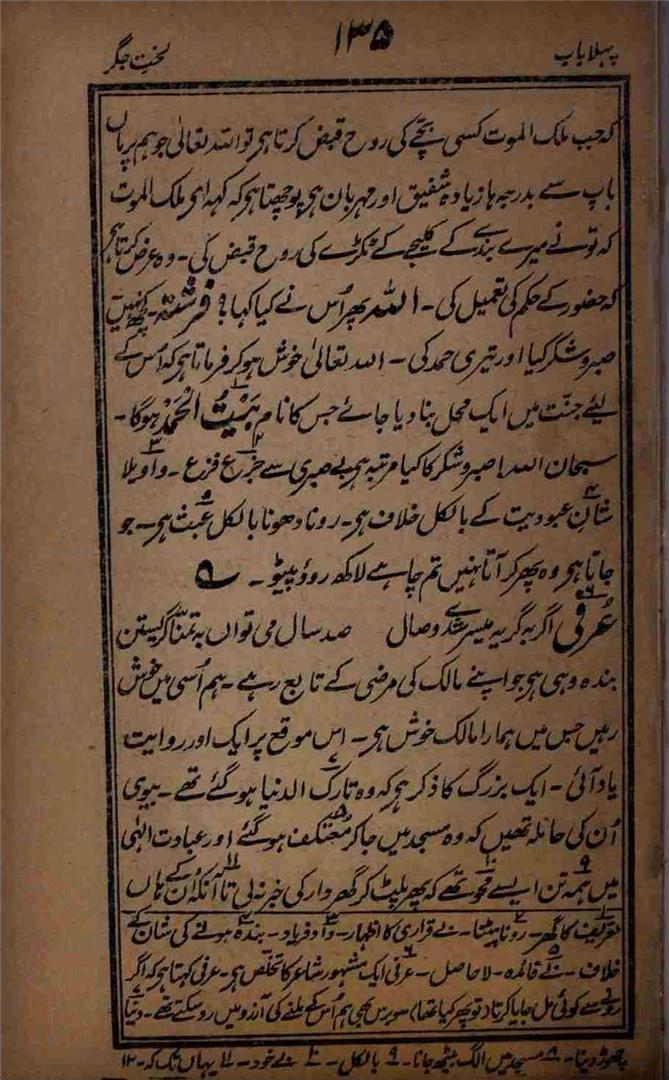 پہلا باب ۱۳۵ لختِ جگر
کہ جب ملک الموت کسی بچّے کی روح قبض کرتا ہر تو اللہ تعالیٰ جو ہم پر ماں
باپ سے بدرجہا زیادہ شفیق اور مہربان ہر پوچھتا ہر کہ کہہ اہر ملک الموت
کہ تو نے میرے بندے کے کلیجے کے ٹکڑے کی روح قبض کی۔ وہ عرض کرتا ہر
کہ حضور کے حکم کی تعمیل کی۔ اللہ پھر اُس نے کیا کہا؟ فرشتہ۔ کچھ نہیں
صبر و شکر کیا اور تیری حمد کی۔ اللہ تعالیٰ خوش ہو کر فرماتا ہر کہ اُس کے
لیئے جنّت میں ایک محل بنا دیا جائے جس کا نام بَیْتُ الْحَمْد ہوگا۔
سبحان اللہ! صبر و شکر کا کیا مرتبہ ہر بے صبری سے جزع فزع۔ واویلا
شانِ عبودیت کے بالکل خلاف ہر۔ رونا دھونا بالکل عبث ہر۔ جو
جاتا ہر وہ پھر کر آتا نہیں تم چاہے لاکھ روؤ پیٹو۔
عُرفی اگر بہ گریہ میسر شدے وصال صد سال می تواں بہ تمنّا گریستن
بندہ وہی ہر جو اپنے مالک کی مرضی کے تابع رہے۔ ہم اُسی میں خوش
رہیں جس میں ہمارا مالک خوش ہر۔ اس موقع پر ایک اور روایت
یاد آئی۔ ایک بزرگ کا ذکر ہر کہ وہ تارک الدنیا ہو گئے تھے۔ بیوی
اُن کی حاملہ تھیں کہ وہ مسجد میں جا کر معتکف ہو گئے اور عبادتِ الٰہی
میں ہمہ تن ایسے محو تھے کہ پھر پلٹ کر گھر دار کی خبر نہ لی تا آنکہ اُن کے ہاں
۱ تعریف کا گھر۔ ۲ رونا پیٹنا۔ بے قراری کا اظہار۔ ۳ داد فریاد۔ ۴ بندہ ہونے کی شان کے
خلاف۔ ۵ بے فائدہ۔ لاحاصل۔ ۶ عرفی ایک مشہور شاعر کا تخلّص ہر۔ عرفی کہتا ہر کہ اگر
رونے سے کوئی مل جایا کرتا (تو پھر کیا تھا) سو برس بھی ہم اُس کے ملنے کی آرزو میں رو سکتے تھے۔ ۷ دنیا
چھوڑ دینا۔ ۸ مسجد میں الگ بیٹھ جانا۔ ۹ بالکل۔ ۱۰ بے خود۔ ۱۱ یہاں تک کہ۔ ۱۲